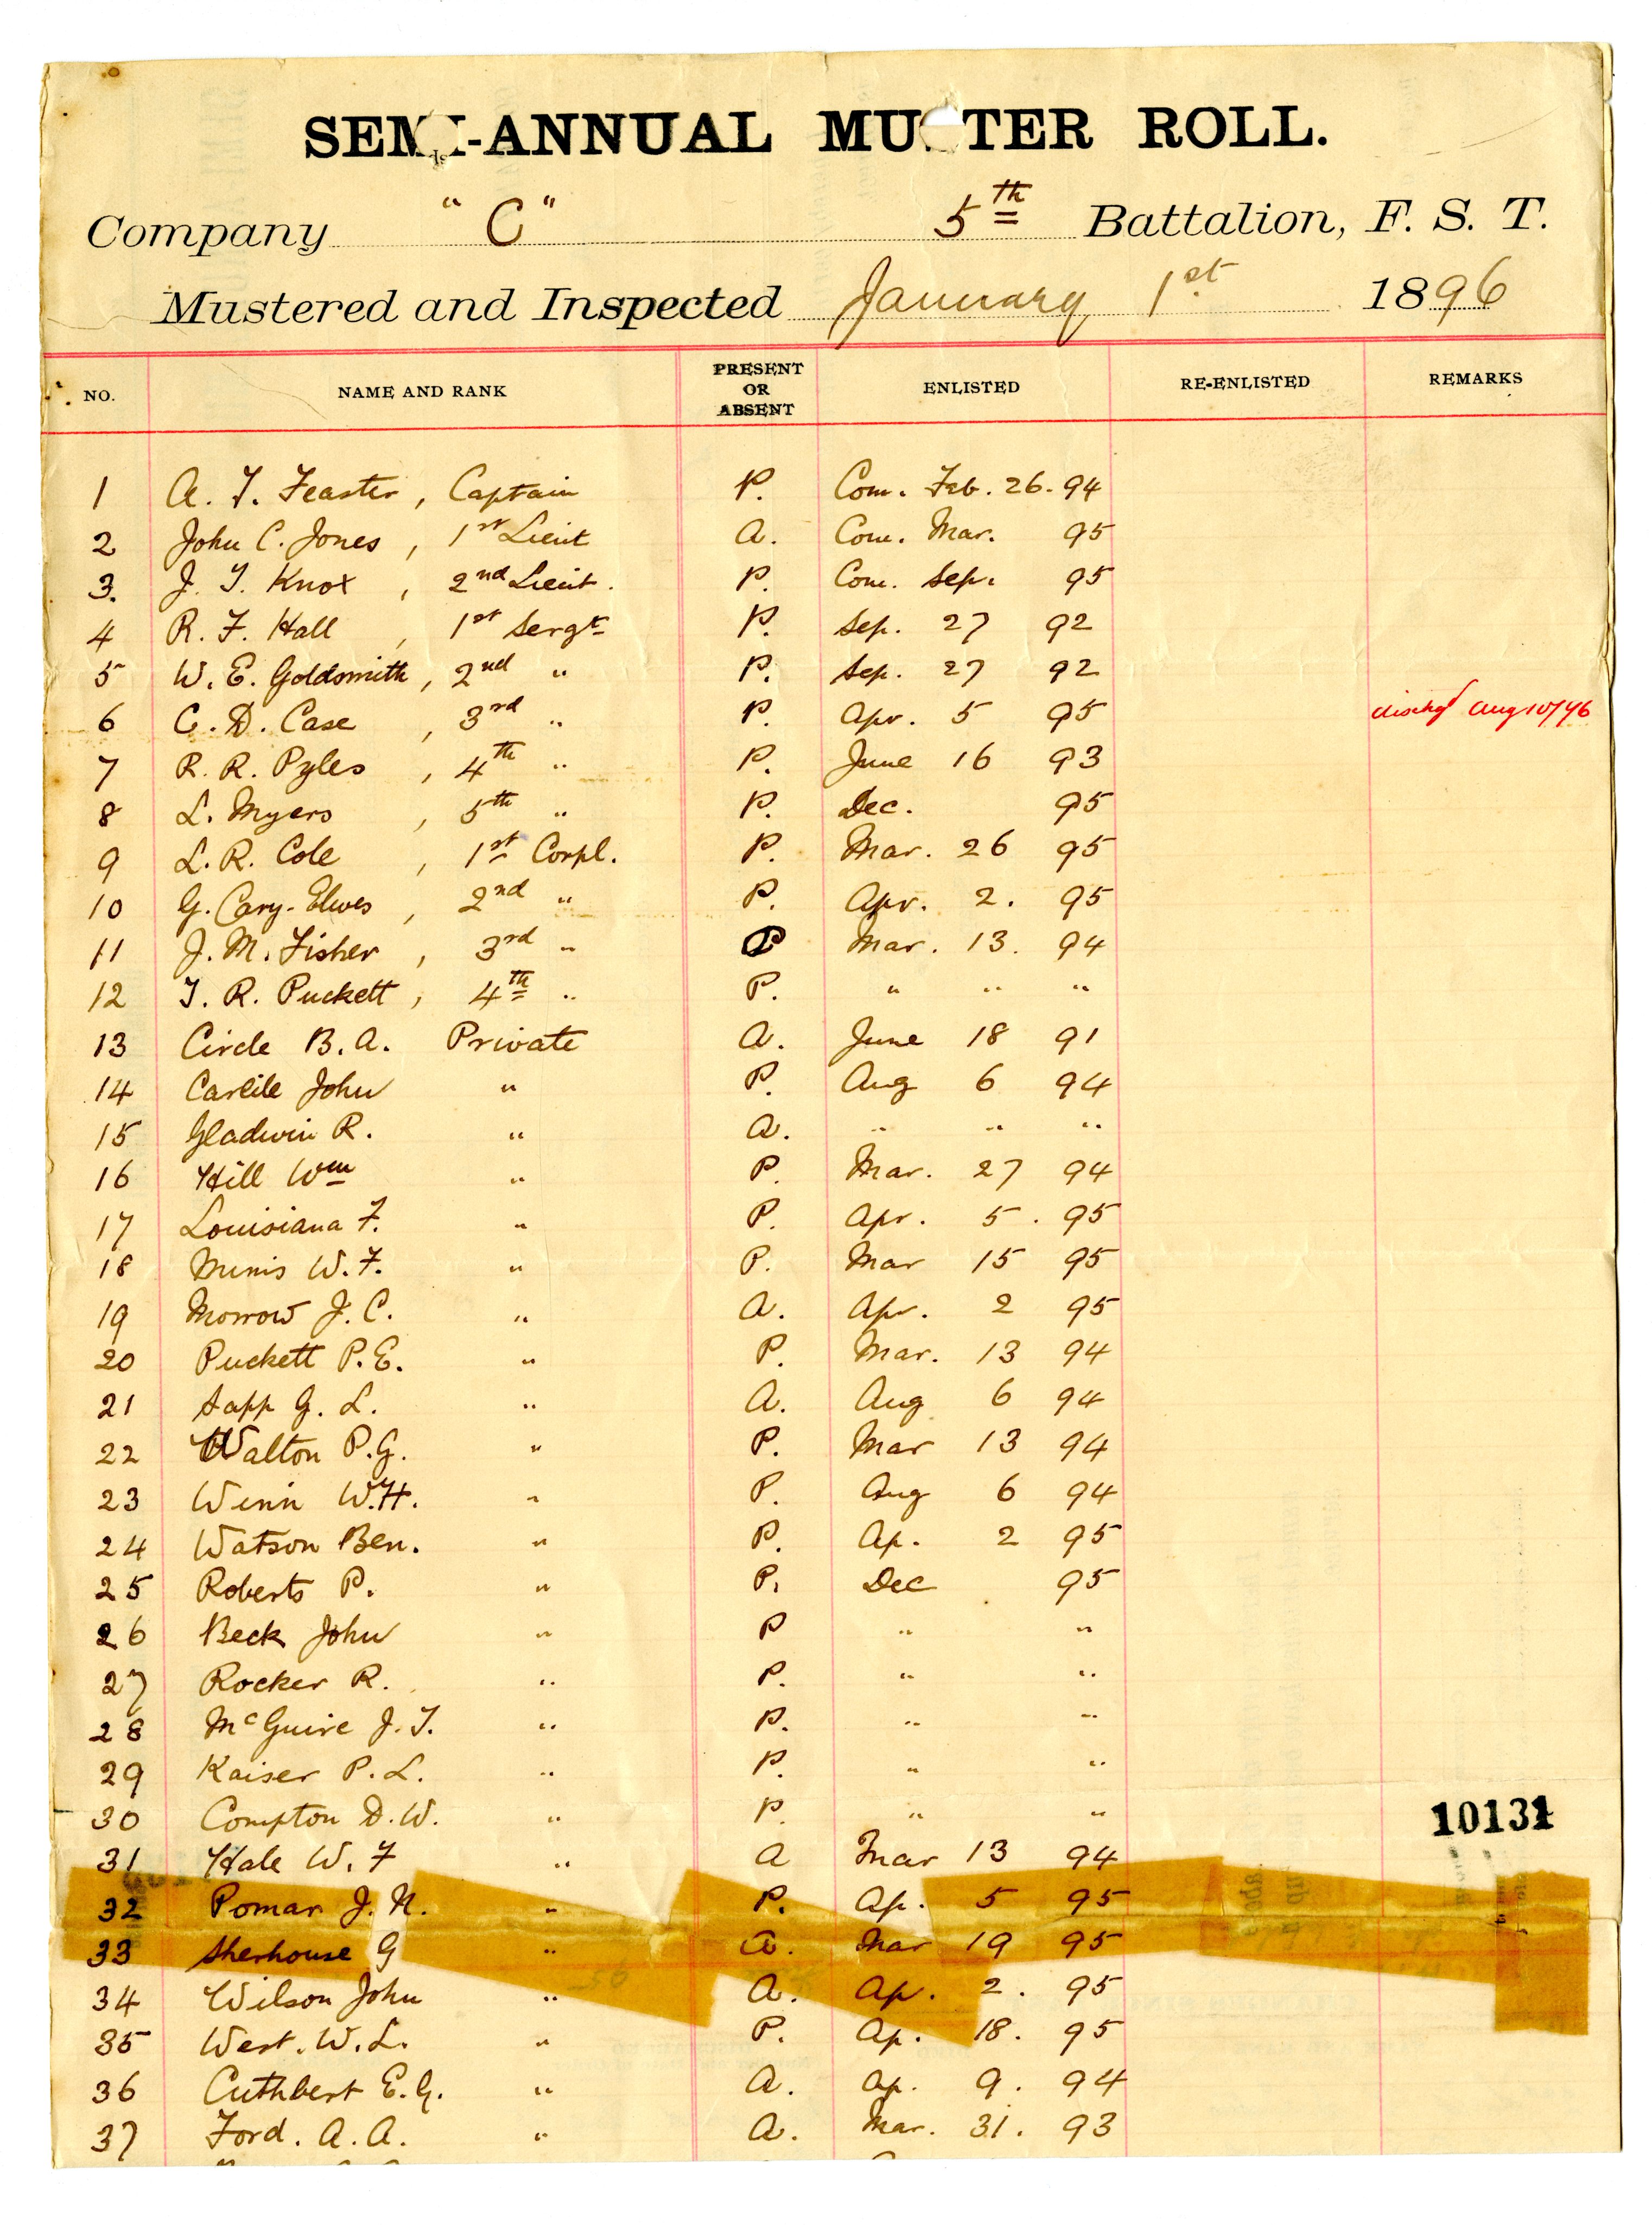 SEMI-ANNUAL MUSTER ROLL.
Company " C " 5th Battalion, F. S. T.
Mustered and Inspected January 1st 1896
NO. NAME AND RANK PRESENT OR ABSENT ENLISTED RE-ENLISTED REMARKS
1 A. T. Feaster, Captain P. Com. Feb. 26. 94
2 John C. Jones, 1st Lieut A. Com. Mar. 95
3. J. T. Knox, 2nd Lieut. P. Com. Sep. 95
4 R. F. Hall, 1st Sergt P. Sep. 27 92
5 W. E. Goldsmith, 2nd " P. Sep. 27 92
6 C. D. Case, 3rd " P. Apr. 5 95 dischgd Aug 10/96
7 R. R. Pyles, 4th " P. June 16 93
8 L. Myers, 5th " P. Dec. 95
9 L. R. Cole, 1st Corpl. P. Mar. 26 95
10 G. Cary-Elwes, 2nd " P. Apr. 2. 95
11 J. M. Fisher, 3rd " P Mar. 13. 94
12 T. R. Puckett, 4th " P. " " "
13 Circle B. A. Private A. June 18 91
14 Carlile John " P. Aug 6 94
15 Gladwin R. " A. " " "
16 Hill Wm " P. Mar. 27 94
17 Louisiana F. " P. Apr. 5. 95
18 Minis W. F. " P. Mar 15 95
19 Morrow J. C. " A. Apr. 2 95
20 Puckett P. E. " P. Mar. 13 94
21 Sapp G. L. " A. Aug 6 94
22 Walton P. G. " P. Mar 13 94
23 Winn W. H. " P. Aug 6 94
24 Watson Ben. " P. Ap. 2 95
25 Roberts P. " P. Dec 95
26 Beck John " P " "
27 Rocker R. " P. " "
28 McGuire J. T. " P. " "
29 Kaiser P. L. " P. " "
30 Compton D. W. " P. " "
10131
31 Hale W. F " A Mar 13 94
32 Pomar J. N. " P. Ap. 5 95
33 Sherhouse G " A. Mar 19 95
34 Wilson John " A. Ap. 2. 95
35 West. W. L. " P. Ap. 18. 95
36 Cuthbert E. G. " A. Ap. 9. 94
37 Ford. A. A. " A. Mar. 31. 93